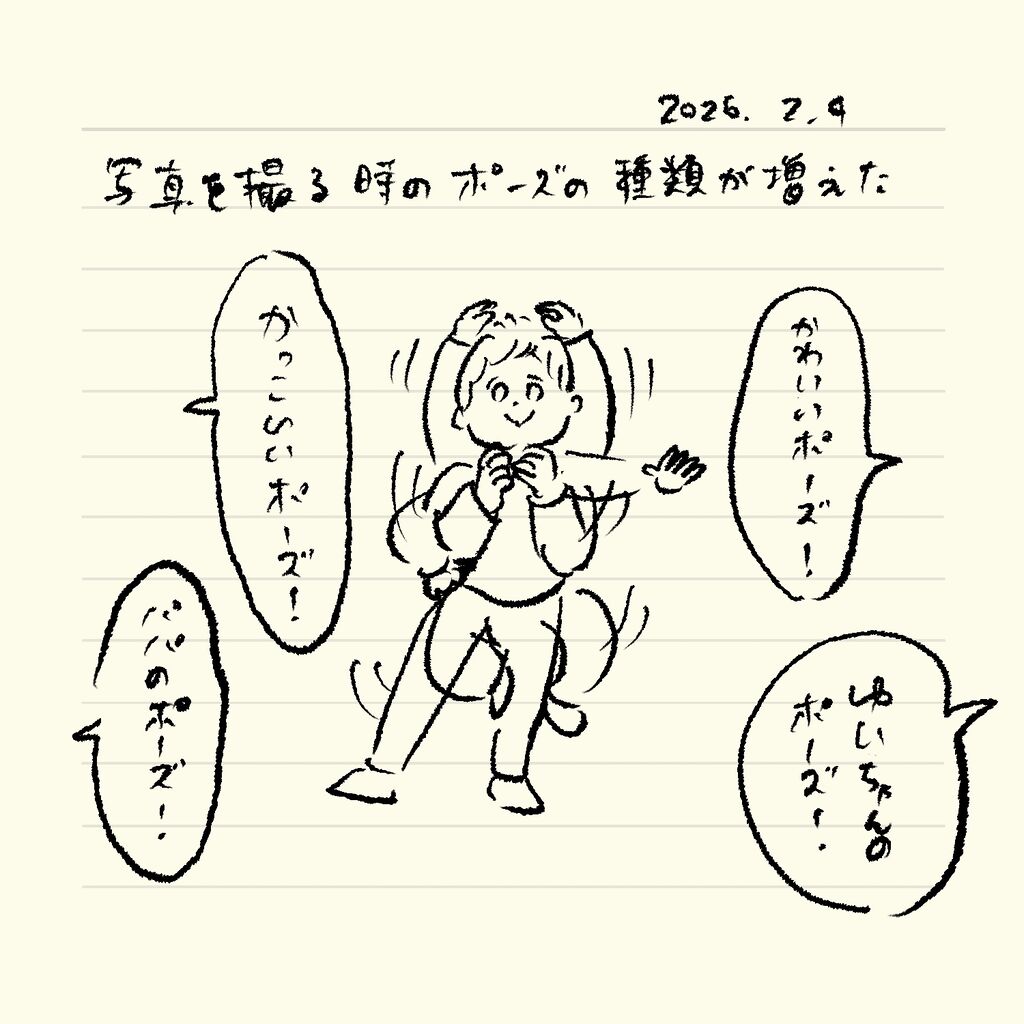 2025. 2. 4
写真を撮る時のポーズの種類が増えた
かわいいポーズ!
かっこいいポーズ!
ゆいちゃんの
ポーズ!
パパのポーズ!